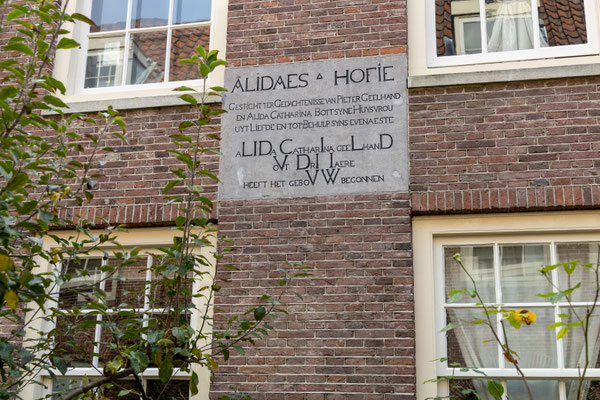 ALIDAES HOFIE
GESTICHT TER GEDACHTENISSE VAN PIETER GEELHAND
EN ALIDA CATHARINA BOTT SYNE HUYSVROU
UYT LIEFDE EN TOT BEHULP SYNS EVENAESTE
ALIDA CATHARINA GEELHAND
OVT DRII IAERE
HEEFT HET GEBOVW BEGONNEN